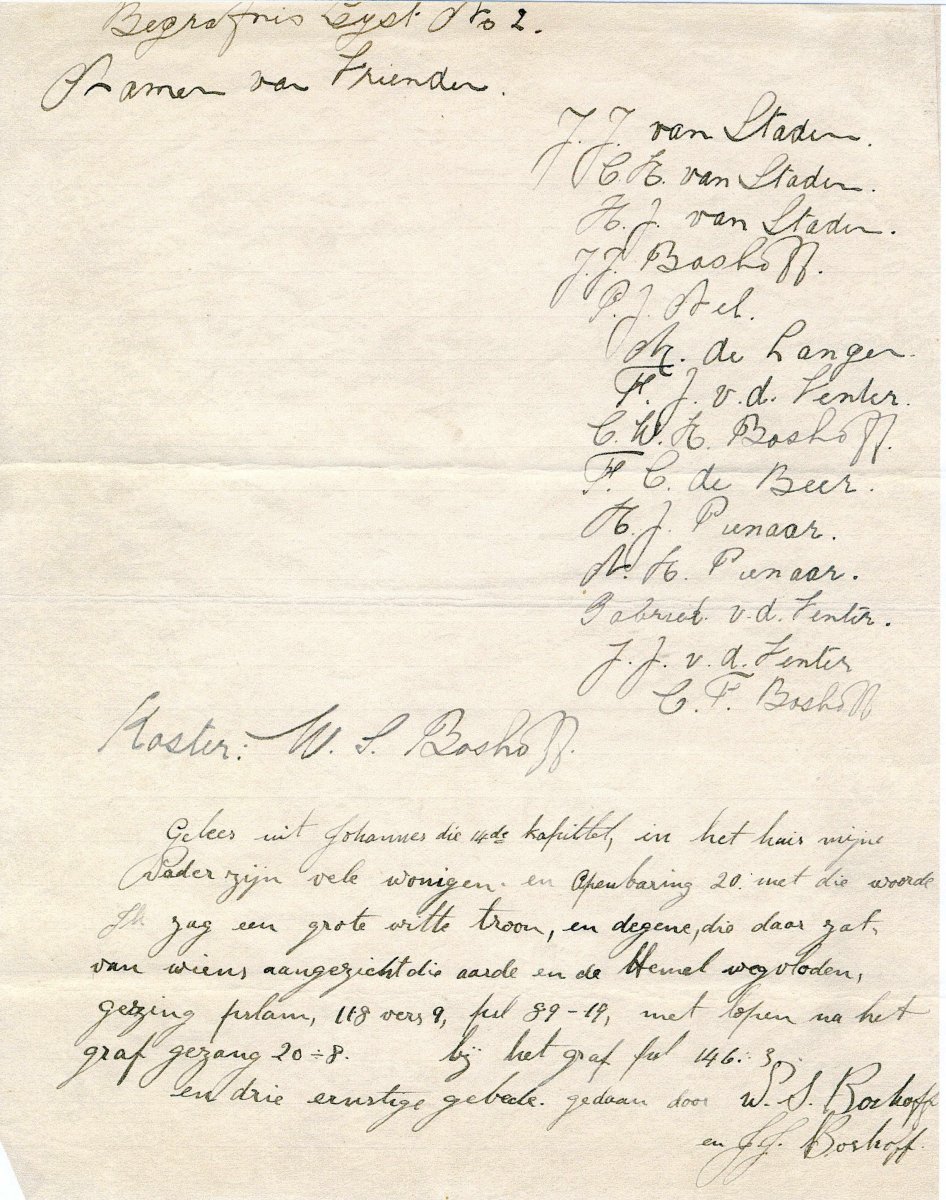 Begrafnis Lyst No 2.
Namen van Vrienden.
J. J. van Staden.
C. H. van Staden.
H. J. van Staden.
J. J. Boshoff.
P. J. Nel.
N. de Langen.
F. J. v. d. Venter.
C. W. H. Boshoff.
F. C. de Beer.
H. J. Pienaar.
N. H. Pienaar.
Gabriel v. d. Venter.
J. J. v. d. Venter
C. F. Boshoff
Koster: W. S. Boshoff.
Gelees uit Johannes die 14de kapittel, in het huis mijne
Vader zijn vele wonigen. en Openbaring 20: met die woorde
Ik zag een grote witte troon, en degene, die daar zat,
van wiens aangezicht die aarde en de Hemel wegvloden,
gezing pslam, 118 vers 9, 89-19, met lopen na het
graf gezang 20÷8. bij het graf 146:3.
en drie ernstige gebede. gedaan door W. S. Boshoff
en J J. Boshoff.